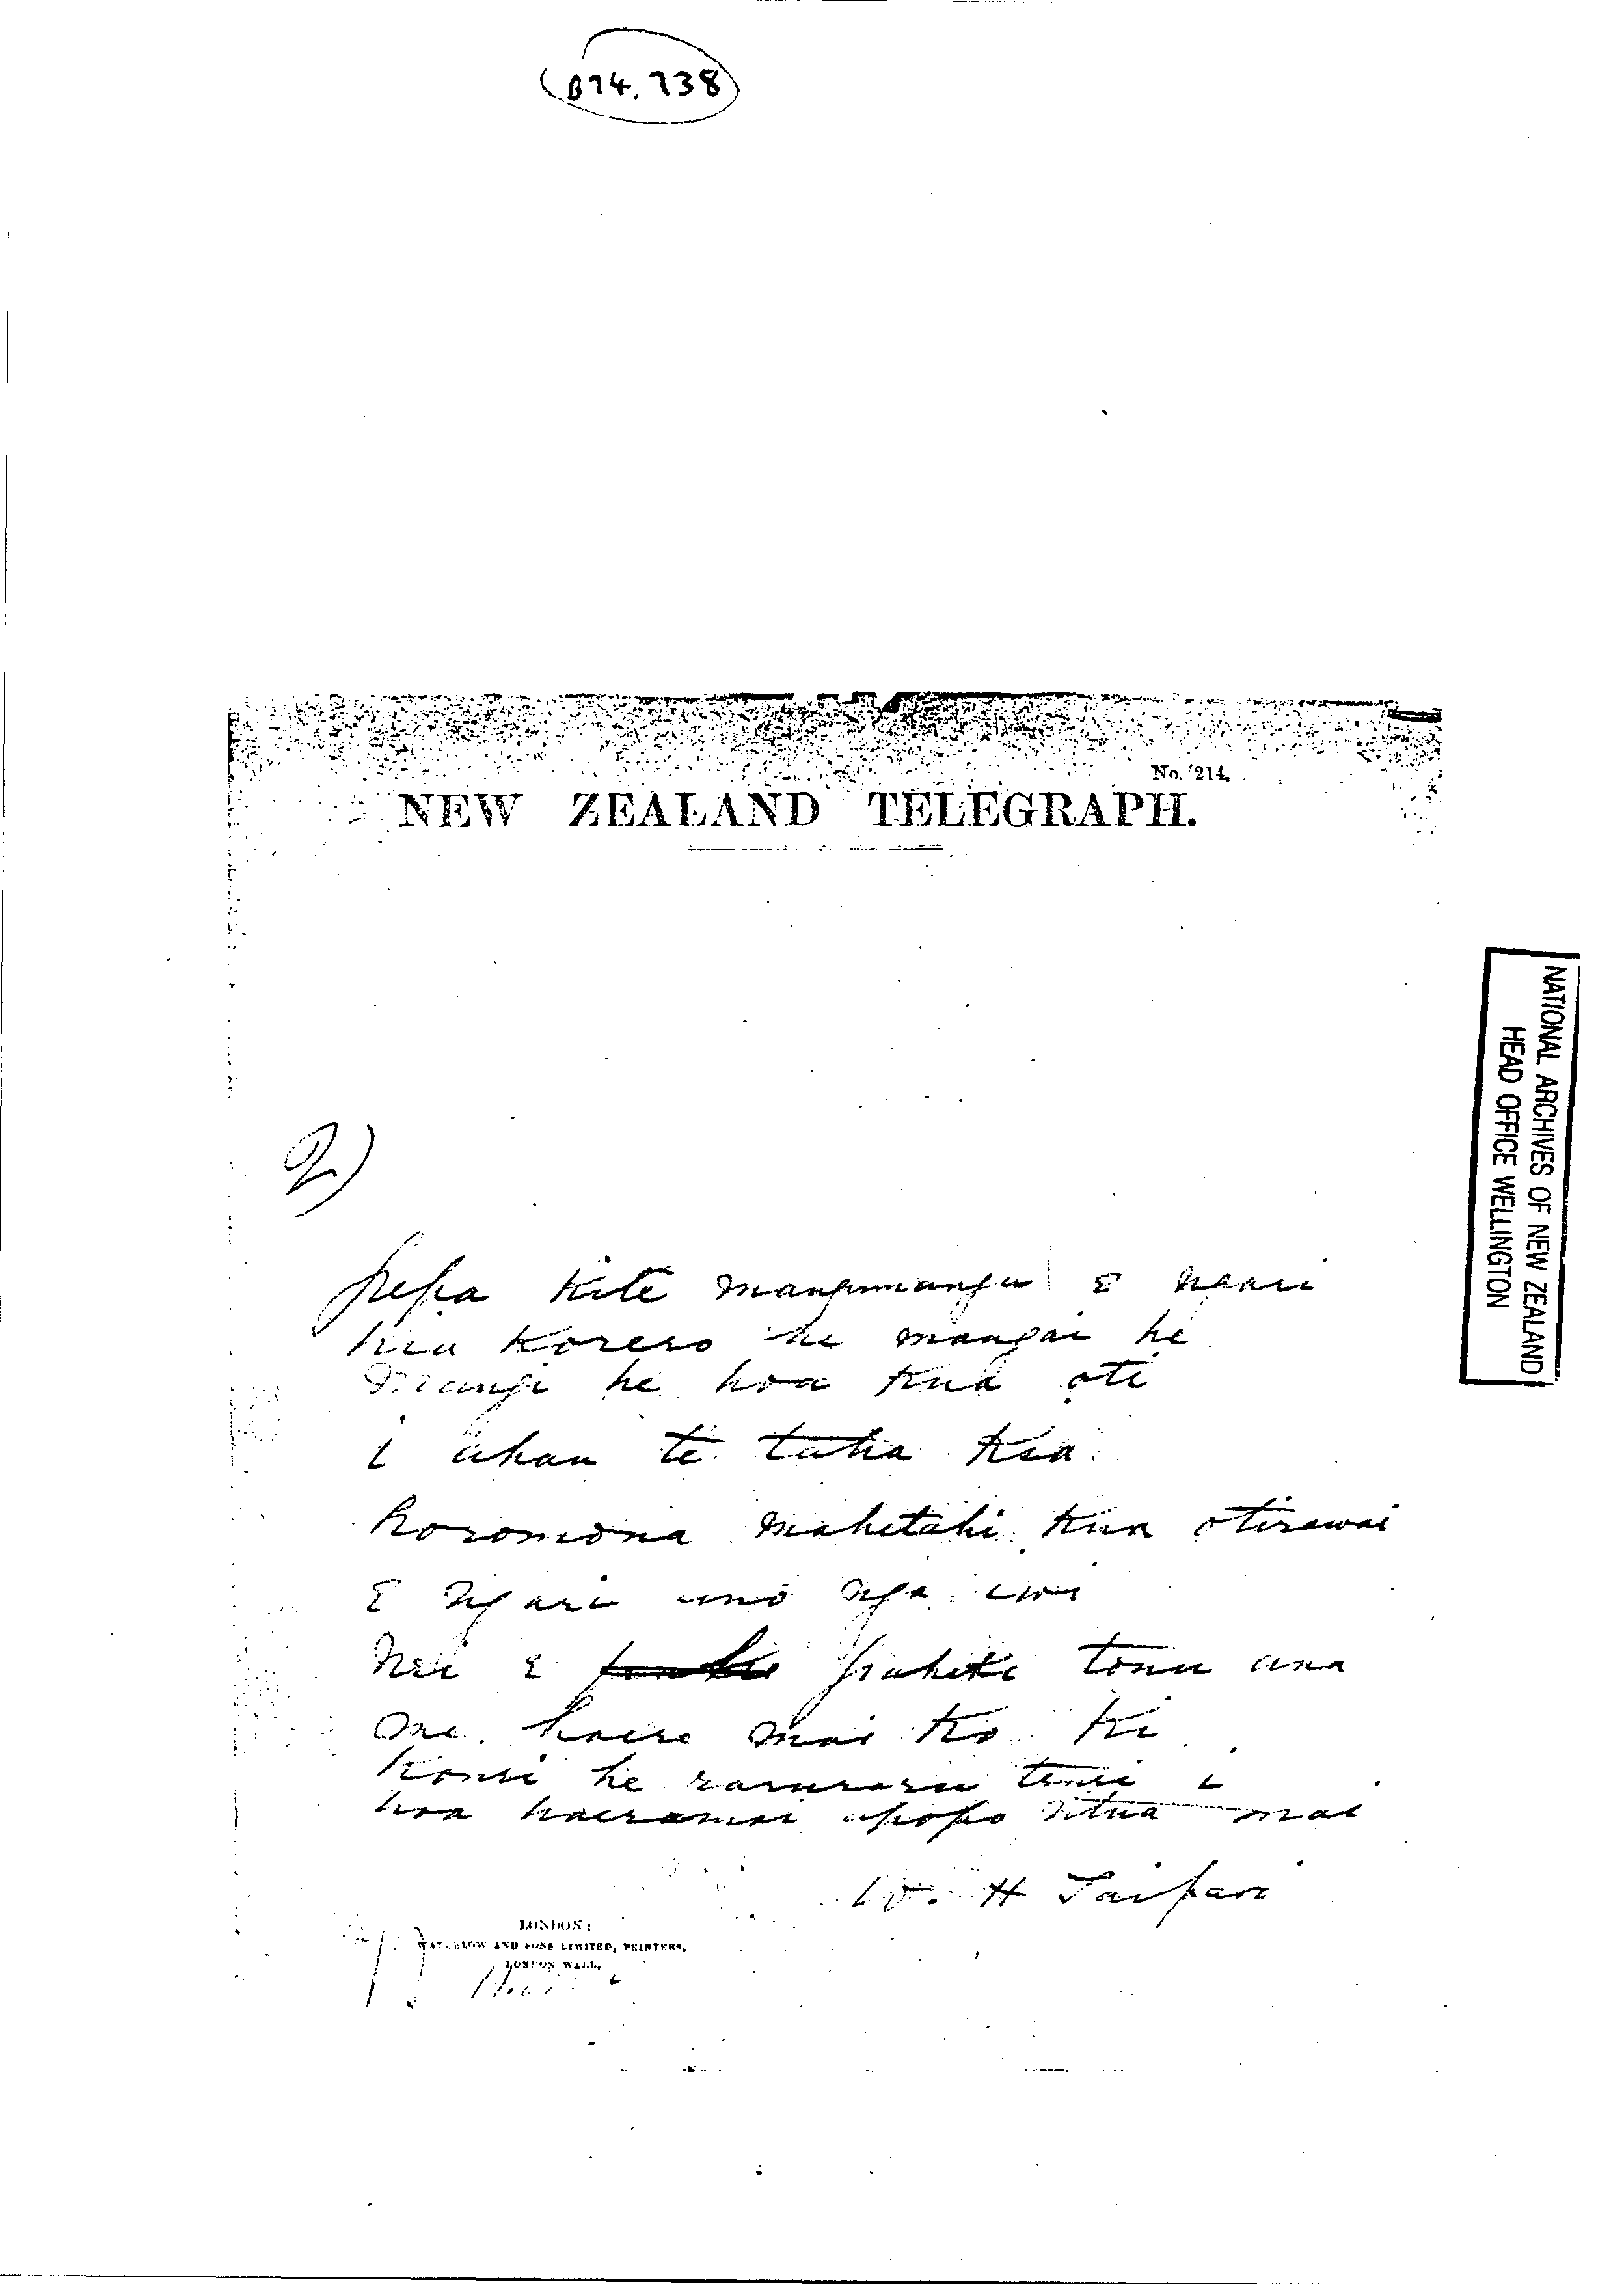 B74.738
No. 214.
NEW ZEALAND TELEGRAPH.
2)
pepa kite mangumangu e ngari
kia korero he mangai he
he hoa kua oti
i ahau te taha kia
Horomona mahetahi kua otirawai
E Ngari ano nga iwi
nei e pakeke tonu ana
me haere mai ko ki
konei he raruraru tenei e
hoa haeramai apopo Utua mai
W. H Taipari
LONDON:
WATERLOW AND SONS LIMITED, PRINTERS,
LONDON WALL.
NATIONAL ARCHIVES OF NEW ZEALAND
HEAD OFFICE WELLINGTON